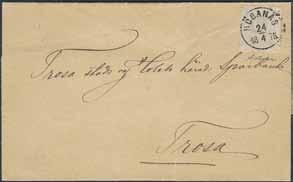 HÖGANÄS
24
4
Trosa stads og Hölebo härad. Sparbank
Trosa